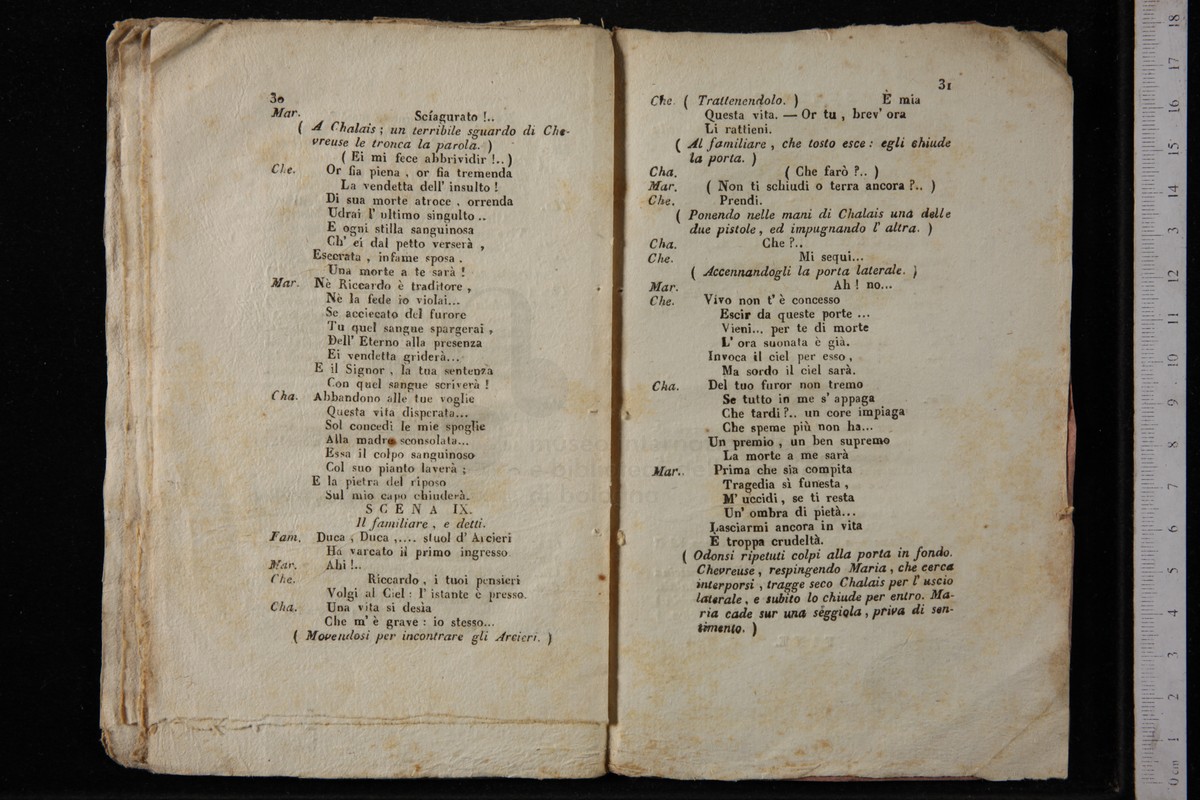 30
Mar. Sciagurato !..
( A Chalais ; un terribile sguardo di Che-
vreuse le tronca la parola. )
( Ei mi fece abbrividir !.. )
Che. Or fia piena , or fia tremenda
La vendetta dell' insulto !
Di sua morte atroce , orrenda
Udrai l' ultimo singulto ..
E ogni stilla sanguinosa
Ch' ei dal petto verserà ,
Esecrata , infame sposa .
Una morte a te sarà !
Mar. Nè Riccardo è traditore ,
Nè la fede io violai...
Se acciecato del furore
Tu quel sangue spargerai ,
Dell' Eterno alla presenza
Ei vendetta griderà...
E il Signor , la tua sentenza
Con quel sangue scriverà !
Cha. Abbandono alle tue voglie
Questa vita disperata...
Sol concedi le mie spoglie
Alla madre sconsolata...
Essa il colpo sanguinoso
Col suo pianto laverà ;
E la pietra del riposo
Sul mio capo chiuderà.
SCENA IX.
Il familiare , e detti.
Fam. Duca , Duca ,.... stuol d' Arcieri
Ha varcato il primo ingresso
Mar. Ahi !..
Che. Riccardo , i tuoi pensieri
Volgi al Ciel : l' istante è presso.
Cha. Una vita si desia
Che m' è grave : io stesso...
( Movendosi per incontrare gli Arcieri. )
31
Che ( Trattenendolo. ) È mia
Questa vita. — Or tu , brev' ora
Li rattieni.
( Al familiare , che tosto esce : egli chiude
la porta. )
Cha. ( Che farò ?.. )
Mar. ( Non ti schiudi o terra ancora ?.. )
Che. Prendi.
( Ponendo nelle mani di Chalais una delle
due pistole , ed impugnando l' altra. )
Cha. Che ?..
Che. Mi sequi...
( Accennandogli la porta laterale. )
Mar. Ah ! no...
Che. Vivo non t' è concesso
Escir da queste porte ...
Vieni... per te di morte
L' ora suonata è già.
Invoca il ciel per esso ,
Ma sordo il ciel sarà.
Cha. Del tuo furor non tremo
Se tutto in me s' appaga
Che tardi ?.. un core impiaga
Che speme più non ha...
Un premio , un ben supremo
La morte a me sarà
Mar.. Prima che sia compita
Tragedia sì funesta ,
M' uccidi , se ti resta
Un' ombra di pietà...
Lasciarmi ancora in vita
È troppa crudeltà.
( Odonsi ripetuti colpi alla porta in fondo.
Chevreuse , respingendo Maria , che cerca
interporsi , tragge seco Chalais per l' uscio
laterale , e subito lo chiude per entro. Ma-
ria cade sur una sèggiola , priva di sen-
timento. )
museo internazionale
e biblioteca della
di bologna
0 cm 1 2 3 4 5 6 7 8 9 10 11 12 13 14 15 16 17 18